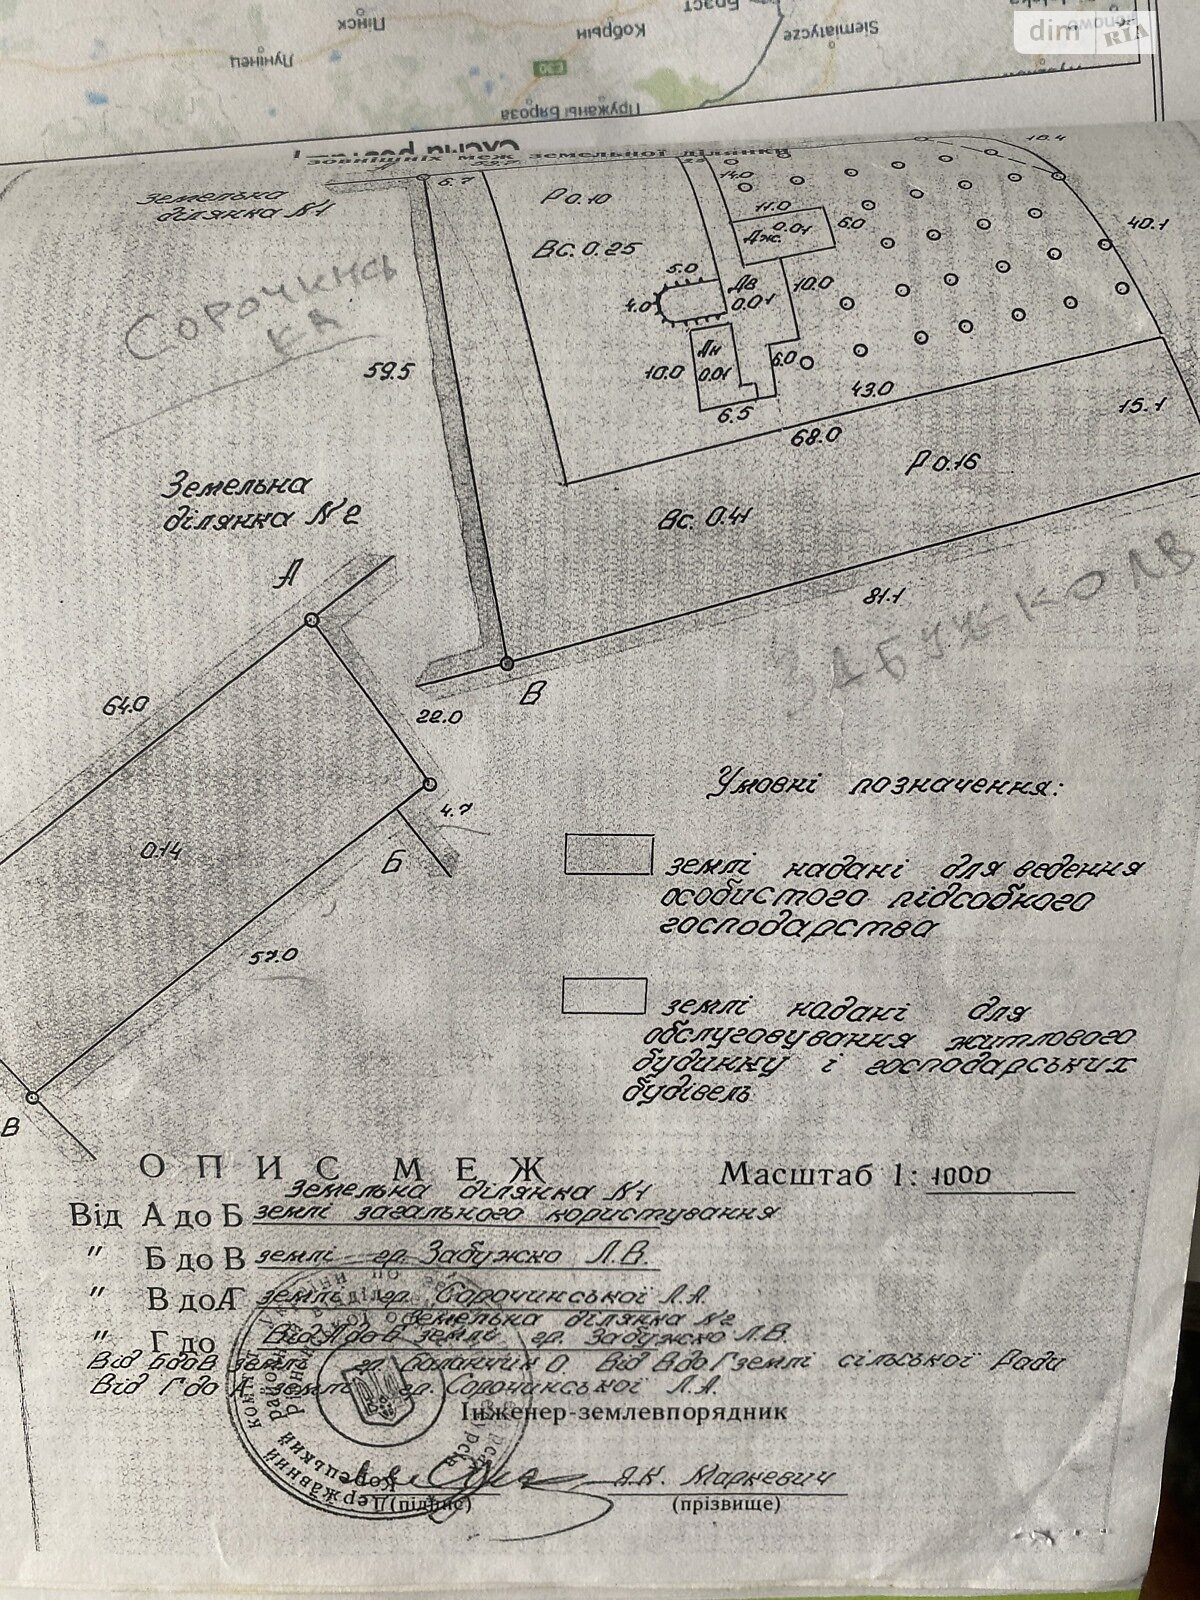 Пінск
Кобрын
Брэст
Siemiatycze
Лунінец
E30
Пружаны
Бяроза
dim RIA
зовнішніх меж земельної ділянки
Земельна
ділянка №1
6.7
Р 0.10
Вс. 0.25
14.0
11.0
0.01
Дж.
6.0
18.4
40.1
5.0
4.0
Дв
0.01
10.0
Дн
0.01
10.0
6.0
6.5
43.0
68.0
15.1
59.5
СОРОЧИНСЬ
КА
Р 0.16
Вс. 0.41
81.1
ЗАБУЖКО Л В
Земельна
ділянка №2
А
В
64.0
22.0
4.7
Б
0.14
57.0
В
Умовні позначення:
землі надані для ведення
особистого підсобного
господарства
землі надані для
обслуговування житлового
будинку і господарських
будівель
ОПИС МЕЖ
Масштаб 1: 1000
Земельна ділянка №1
Від А до Б землі загального користування
" Б до В землі гр. Забужко Л.В.
" В до А землі гр. Сорочинської Л.А.
Земельна ділянка №2
" Г до Від А до Б землі гр. Забужко Л.В.
Від Б до В землі гр. Баланчин О Від В до Г землі сільської Ради
Від Г до А землі гр. Сорочинської Л.А.
Інженер-землевпорядник
Я.К. Маркевич
(підпис)
(прізвище)